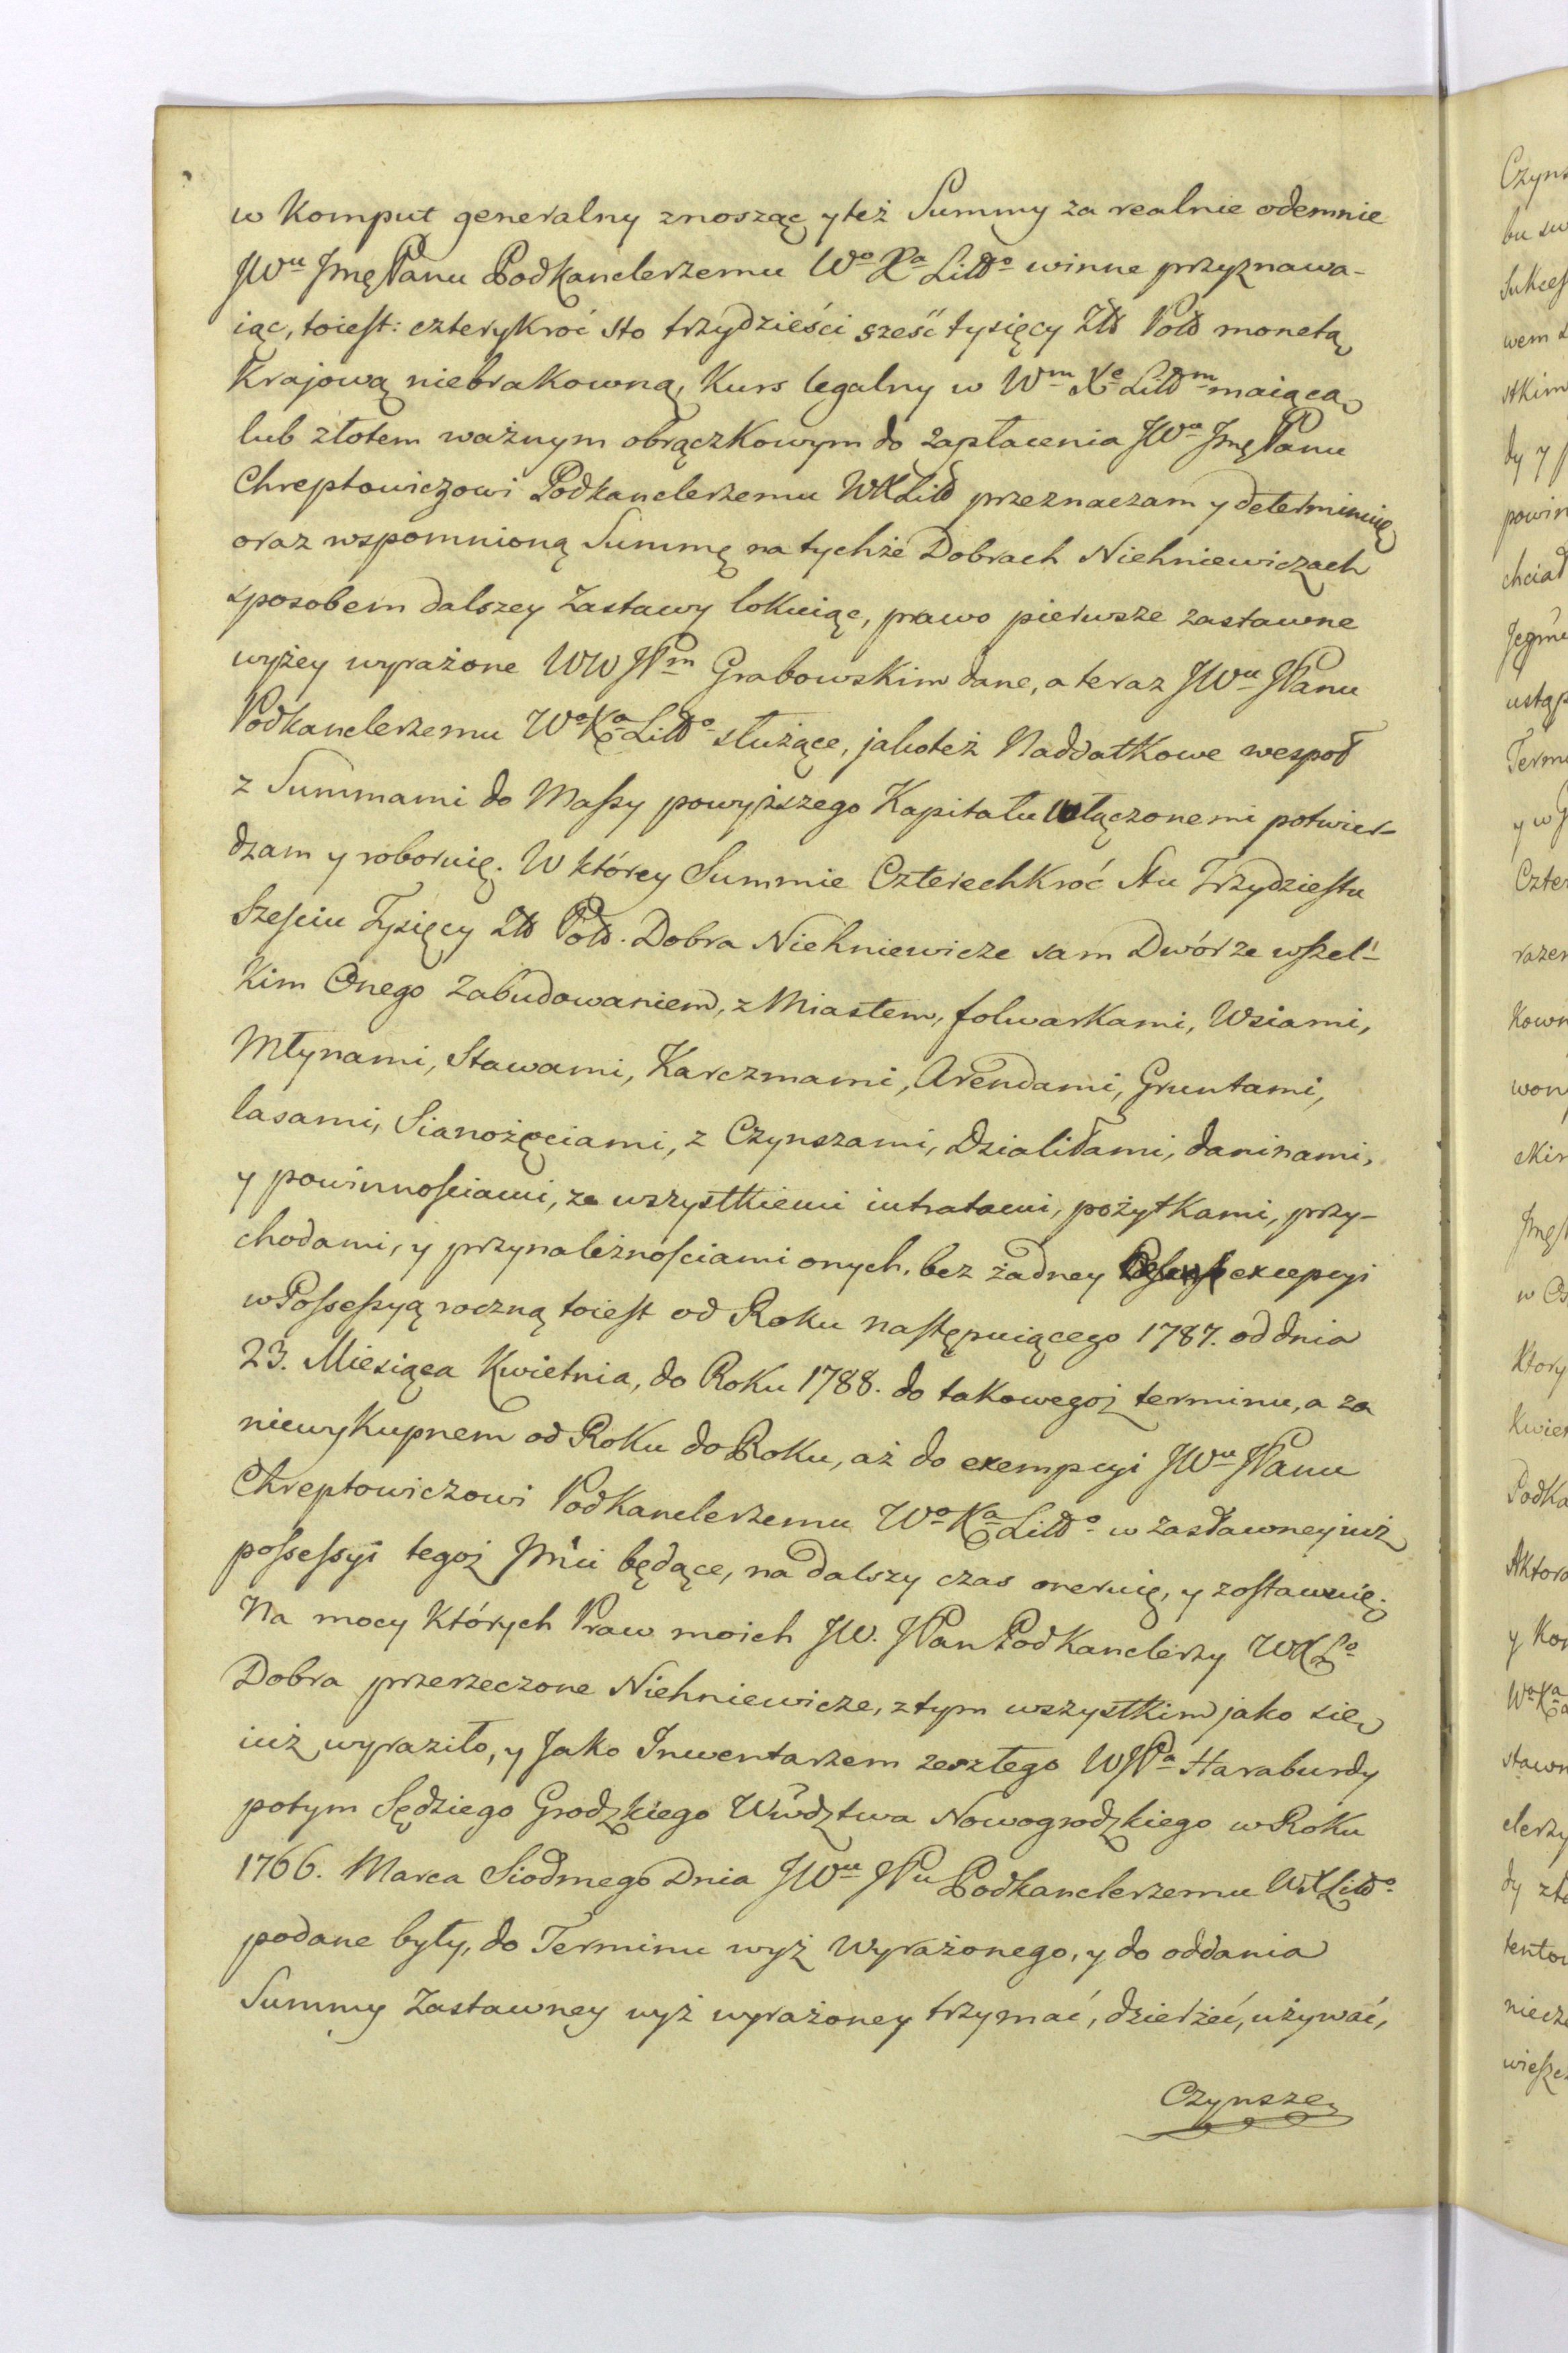 w Komput generalny znosząc y też Summy za realnie odemnie
JWu Jmę Panu Podkanclerzemu Wo Xa Littº winne przyznawa-
iąc, toiest: czterykroć sto trzydzieści sześć tysięcy Złł Poll monetą
Krajową niebrakowną, Kurs legalny w Wm Xe Littm maiącą
lub złotem ważnym obrączkowym do zapłacenia JWu Jmę Panu
Chreptowiczowi Podkanclerzemu WXLitt przeznaczam y determinuię
oraz wspomnioną Summę na tychże Dobrach Niehniewiczach
sposobem dalszey Zastawy lokuiąc, prawo pierwsze zastawne
wyżey wyrażone WW JPm Grabowskim dane, a teraz JWu JPanu
Podkanclerzemu Wo Xa Littº służące, jakoteż Naddatkowe wespoł
z Summami do Maſsy powyższego Kapitału włączonemi potwier-
dzam y roboruię. W którey Summie Czterechkroć Stu Trzydzieſtu
Szeſciu Tysięcy Złł Poll. Dobra Niehniewicze sam Dwór ze wſzel-
kim Onego Zabudowaniem, z Miastem, folwarkami, Wsiami,
Młynami, Stawami, Karczmami, Arendami, Gruntami,
lasami, Sianożęciami, z Czynszami, Dziakłami, daninami,
y powinnoſciami, ze wszystkiemi intratami, pożytkami, przy-
chodami, y przynależnoſciami onych, bez żadney excepcyi
w Poſseſsyą roczną toieſt od Roku naſtępuiącego 1787. od dnia
23. Miesiąca Kwietnia, do Roku 1788. do takowegoż terminu, a za
niewykupnem od Roku do Roku, aż do exempcyi JWu JPanu
Chreptowiczowi Podkanclerzemu Wo Xa Littº w zastawney iuż
poſseſsyi tegoż Jmci będące, na dalszy czas oneruię, y zoſtawuię.
Na mocy których Praw moich JW. JPan Podkanclerzy WXLº
Dobra przerzeczone Niehniewicze, z tym wszystkim jako się
iuż wyraziło, y Jako Inwentarzem zeszłego WJPa Haraburdy
potym Sędziego Grodzkiego Wwdztwa Nowogrodzkiego w Roku
1766. Marca Siodmego Dnia JWu JPu Podkanclerzemu WXLittº
podane były, do Terminu wyż Wyrażonego, y do oddania
Summy Zastawney wyż wyrażoney trzymać, dzierżeć, używać,
Czynsze